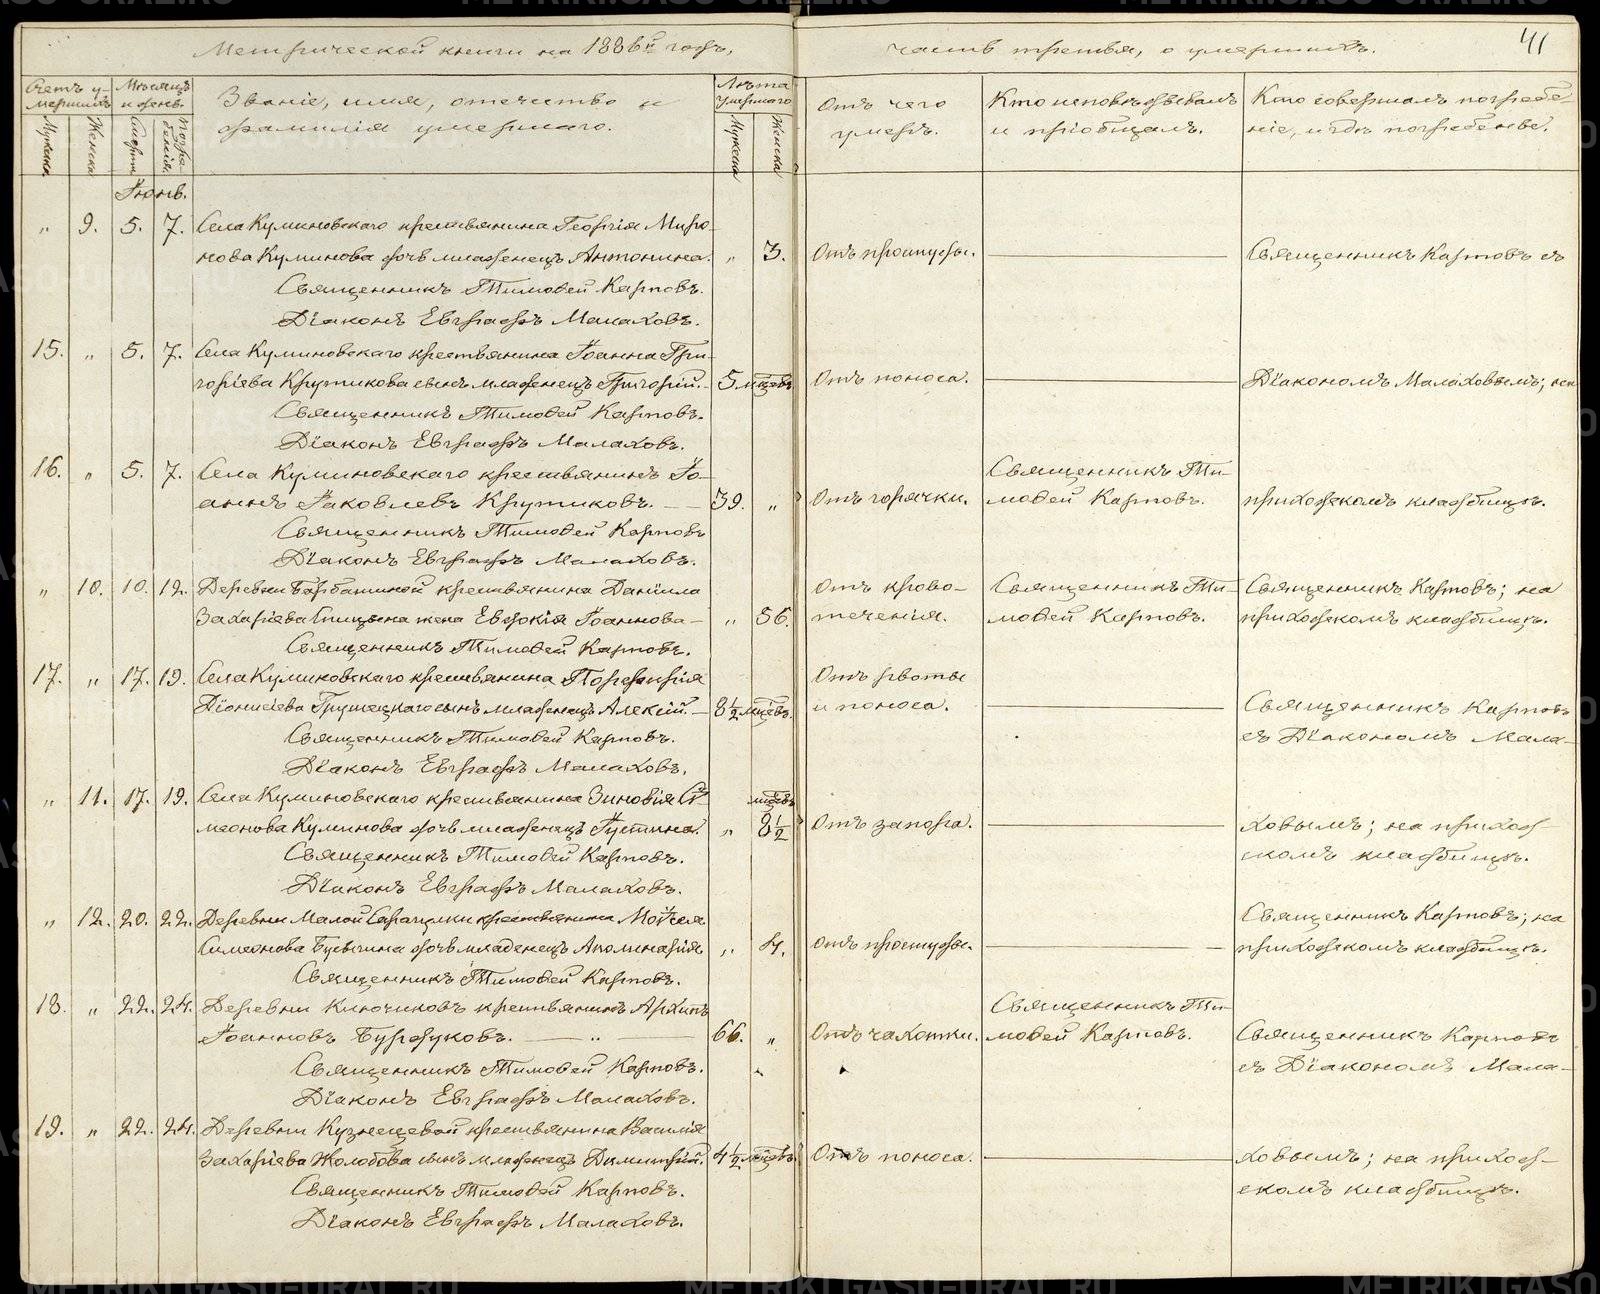 Метрической книги на 1886й годъ,
часть третья, о умершихъ.
41
Счетъ у-
мершихъ
Мужска
Женска
Мѣсяцъ
и день
Смерти
Погре-
бенія
Званіе, имя, отечество и
фамилія умершаго.
Лѣта
умершаго
Мужска
Женска
Отъ чего
умеръ.
Кто исповѣдывалъ
и пріобщалъ.
Кто совершалъ погребе-
ніе, и гдѣ погребены.
Іюнь.
„ 9. 5. 7. Села Куминовскаго крестьянина Георгія Миро-
нова Куминова дочь младенецъ Антонина. „ 3. Отъ простуды. Священникъ Карповъ съ
Священникъ Тимоѳей Карповъ.
Діаконъ Евграфъ Малаховъ.
15. „ 5. 7. Села Куминовскаго крестьянина Іоанна Гри-
горіева Крутикова сынъ младенецъ Григорій. 5 мцевъ Отъ поноса. Діакономъ Малаховымъ; на
Священникъ Тимоѳей Карповъ.
Діаконъ Евграфъ Малаховъ.
16. „ 5. 7. Села Куминовскаго крестьянинъ Іо- Священникъ Ти-
аннъ Іаковлевъ Крутиковъ. 39. „ Отъ горячки. моѳей Карповъ. приходскомъ кладбищѣ.
Священникъ Тимоѳей Карповъ
Діаконъ Евграфъ Малаховъ.
„ 10. 10. 12. Деревни Барбашиной крестьянина Даніила Отъ крово- Священникъ Ти- Священникъ Карповъ; на
Захаріева Спицына жена Евдокія Іоаннова „ 56. теченія. моѳей Карповъ. приходскомъ кладбищѣ.
Священникъ Тимоѳей Карповъ.
17. „ 17. 19. Села Куминовскаго крестьянина Порфирія Отъ рвоты
Діонисіева Грушецкаго сынъ младенецъ Алексій. 8½ мцевъ. и поноса. Священникъ Карповъ
Священникъ Тимоѳей Карповъ. съ Діакономъ Мала-
Діаконъ Евграфъ Малаховъ.
„ 11. 17. 19. Села Куминовскаго крестьянина Зиновія Си- мцевъ
меонова Куминова дочь младенецъ Іустина. „ 8½ Отъ запора. ховымъ; на приход-
Священникъ Тимоѳей Карповъ. скомъ кладбищѣ.
Діаконъ Евграфъ Малаховъ.
„ 12. 20. 22. Деревни Малой крестьянина Моѵсея Священникъ Карповъ; на
Симеонова дочь младенецъ Аполинарія „ 4. Отъ простуды. приходскомъ кладбищѣ.
Священникъ Тимоѳей Карповъ.
18. „ 22. 24. Деревни Ключиковъ крестьянинъ Архипъ Священникъ Ти-
Іоанновъ Бурдуковъ. „ 66. „ Отъ чахотки. моѳей Карповъ. Священникъ Карповъ
Священникъ Тимоѳей Карповъ. съ Діакономъ Мала-
Діаконъ Евграфъ Малаховъ.
19. „ 22. 24. Деревни Кузнецовой крестьянина Василія
Захаріева Жолобова сынъ младенецъ Димитрій. 4½ мцевъ. Отъ поноса. ховымъ; на приход-
Священникъ Тимоѳей Карповъ. скомъ кладбищѣ.
Діаконъ Евграфъ Малаховъ.
METRIKI.GASO-URAL.RU